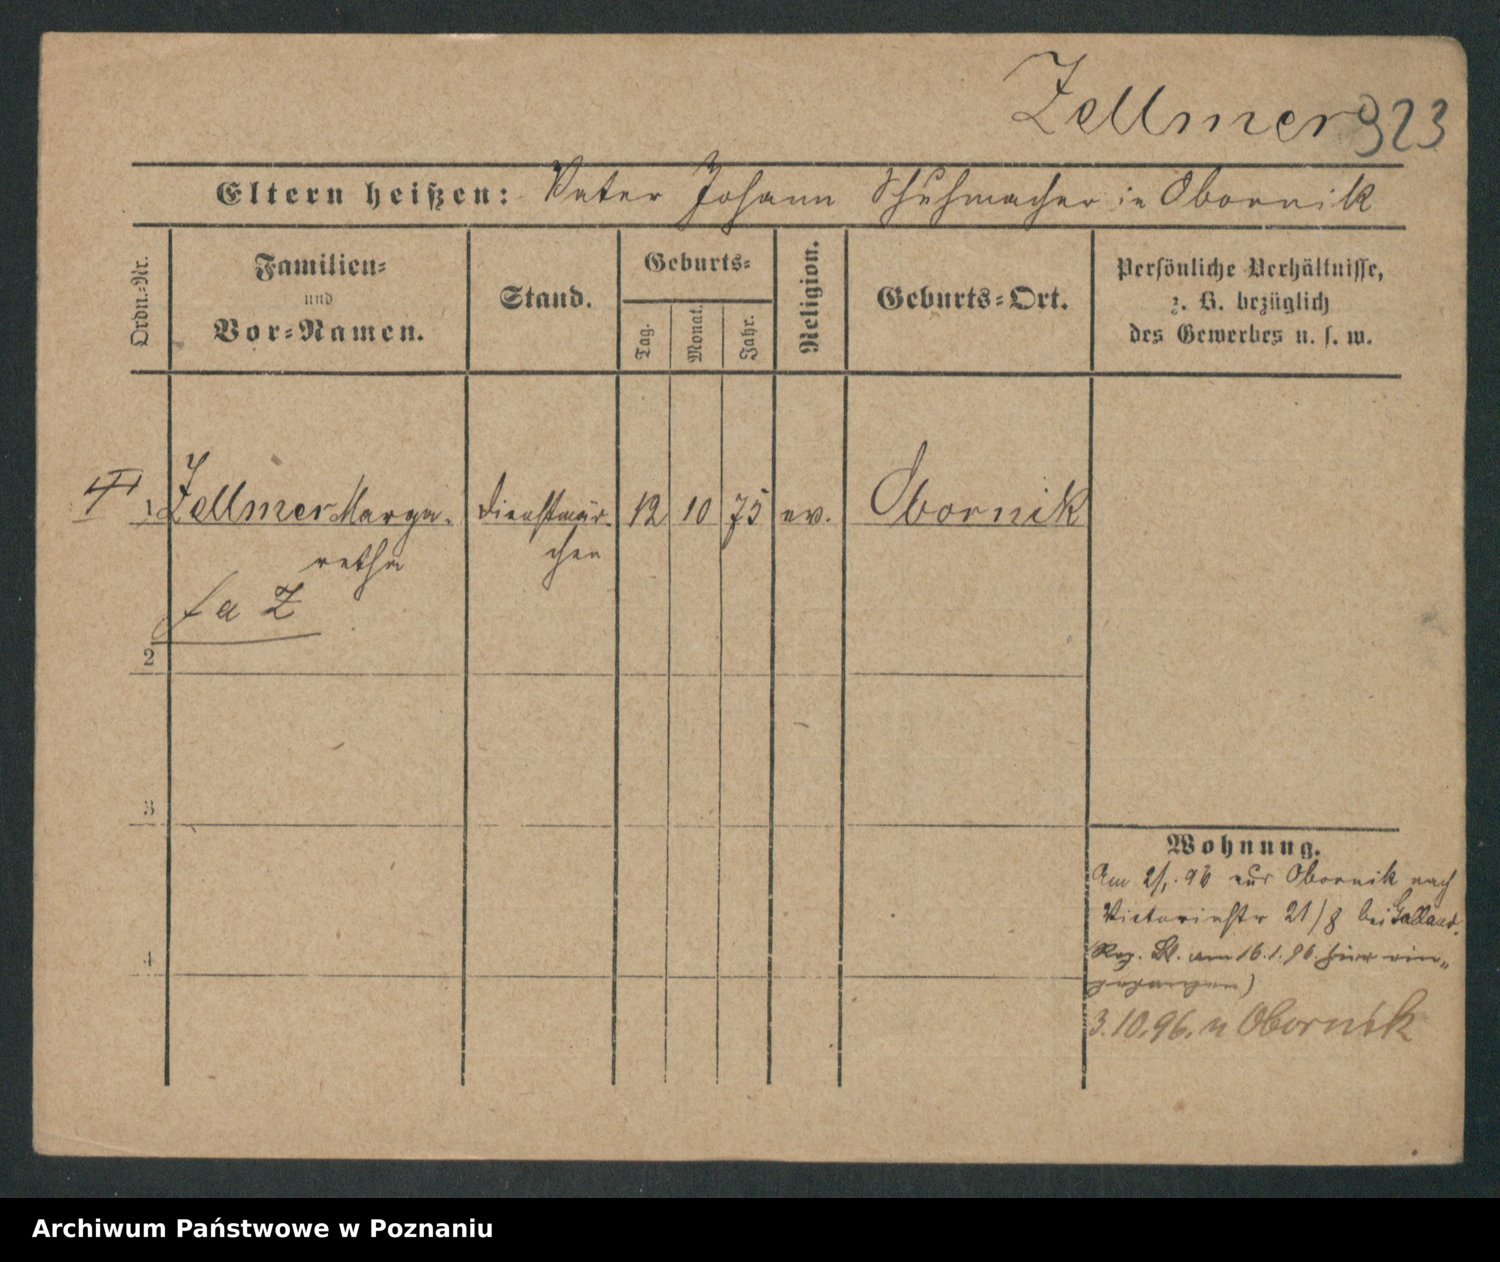 Zellmer 923
Eltern heißen: Vater Johann Schuhmacher in Obornik
Ordn.-Nr.
Familien-
und
Vor-Namen.
Stand.
Geburts-
Tag.
Monat.
Jahr.
Religion.
Geburts-Ort.
Persönliche Verhältnisse,
z. B. bezüglich
des Gewerbes u. s. w.
1 Zellmer Marga- Dienstmäd- 12 10 75 ev. Obornik
retha chen
a Z
2
3
4
Wohnung.
Am 2/1. 96 aus Obornik nach
Victoriastr 21/8 bei Galland.
am 16.1.96 hier ein-
3.10.96. n Obornik
Archiwum Państwowe w Poznaniu